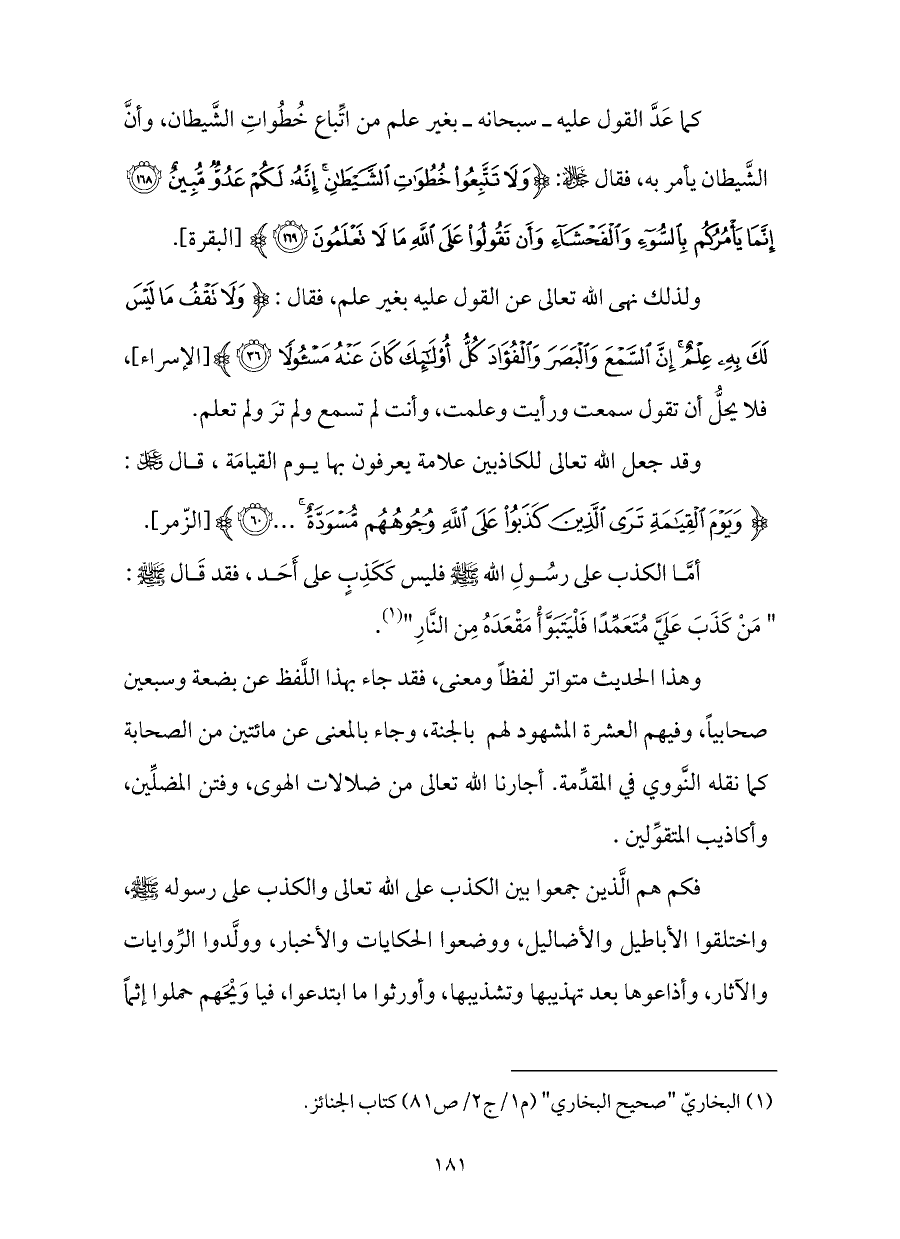 كما عَدَّ القول عليه ـ سبحانه ـ بغير علم من اتِّباع خُطُواتِ الشَّيطان، وأنَّ
الشَّيطان يأمر به، فقال ﷻ: ﴿وَلَا تَتَّبِعُوا۟ خُطُوَٰتِ ٱلشَّيْطَـٰنِ ۚ إِنَّهُۥ لَكُمْ عَدُوٌّ مُّبِينٌ ۝١٦٨
إِنَّمَا يَأْمُرُكُم بِٱلسُّوٓءِ وَٱلْفَحْشَآءِ وَأَن تَقُولُوا۟ عَلَى ٱللَّهِ مَا لَا تَعْلَمُونَ ۝١٦٩ ﴾ [البقرة].
ولذلك نهى الله تعالى عن القول عليه بغير علم، فقال : ﴿ وَلَا تَقْفُ مَا لَيْسَ
لَكَ بِهِۦ عِلْمٌ ۚ إِنَّ ٱلسَّمْعَ وَٱلْبَصَرَ وَٱلْفُؤَادَ كُلُّ أُو۟لَـٰٓئِكَ كَانَ عَنْهُ مَسْـُٔولًا ۝٣٦ ﴾ [الإسراء]،
فلا يحلُّ أن تقول سمعت ورأيت وعلمت، وأنت لم تسمع ولم ترَ ولم تعلم.
وقد جعل الله تعالى للكاذبين علامة يعرفون بها يــوم القيامَة ، قــال ﷿ :
﴿ وَيَوْمَ ٱلْقِيَـٰمَةِ تَرَى ٱلَّذِينَ كَذَبُوا۟ عَلَى ٱللَّهِ وُجُوهُهُم مُّسْوَدَّةٌ ۚ ...۝٦٠ ﴾ [الزّمر].
أمَّــا الكذب على رسُــولِ الله ﷺ فليس كَكَذِبٍ على أَحَــد ، فقد قَــال ﷺ :
" مَنْ كَذَبَ عَلَيَّ مُتَعَمِّدًا فَلْيَتَبَوَّأْ مَقْعَدَهُ مِن النَّارِ "(١).
وهذا الحديث متواتر لفظاً ومعنى، فقد جاء بهذا اللَّفظ عن بضعة وسبعين
صحابياً، وفيهم العشرة المشهود لهم بالجنة، وجاء بالمعنى عن مائتين من الصحابة
كما نقله النَّووي في المقدِّمة. أجارنا الله تعالى من ضلالات الهوى، وفتن المضلِّين،
وأكاذيب المتقوِّلين .
فكم هم الَّذين جمعوا بين الكذب على الله تعالى والكذب على رسوله ﷺ،
واختلقوا الأباطيل والأضاليل، ووضعوا الحكايات والأخبار، وولَّدوا الرِّوايات
والآثار، وأذاعوها بعد تهذيبها وتشذيبها، وأورثوا ما ابتدعوا، فيا وَيْحَهم حملوا إثماً
(١) البخاريّ "صحيح البخاري" (م١/ ج٢/ ص٨١) كتاب الجنائز.
١٨١